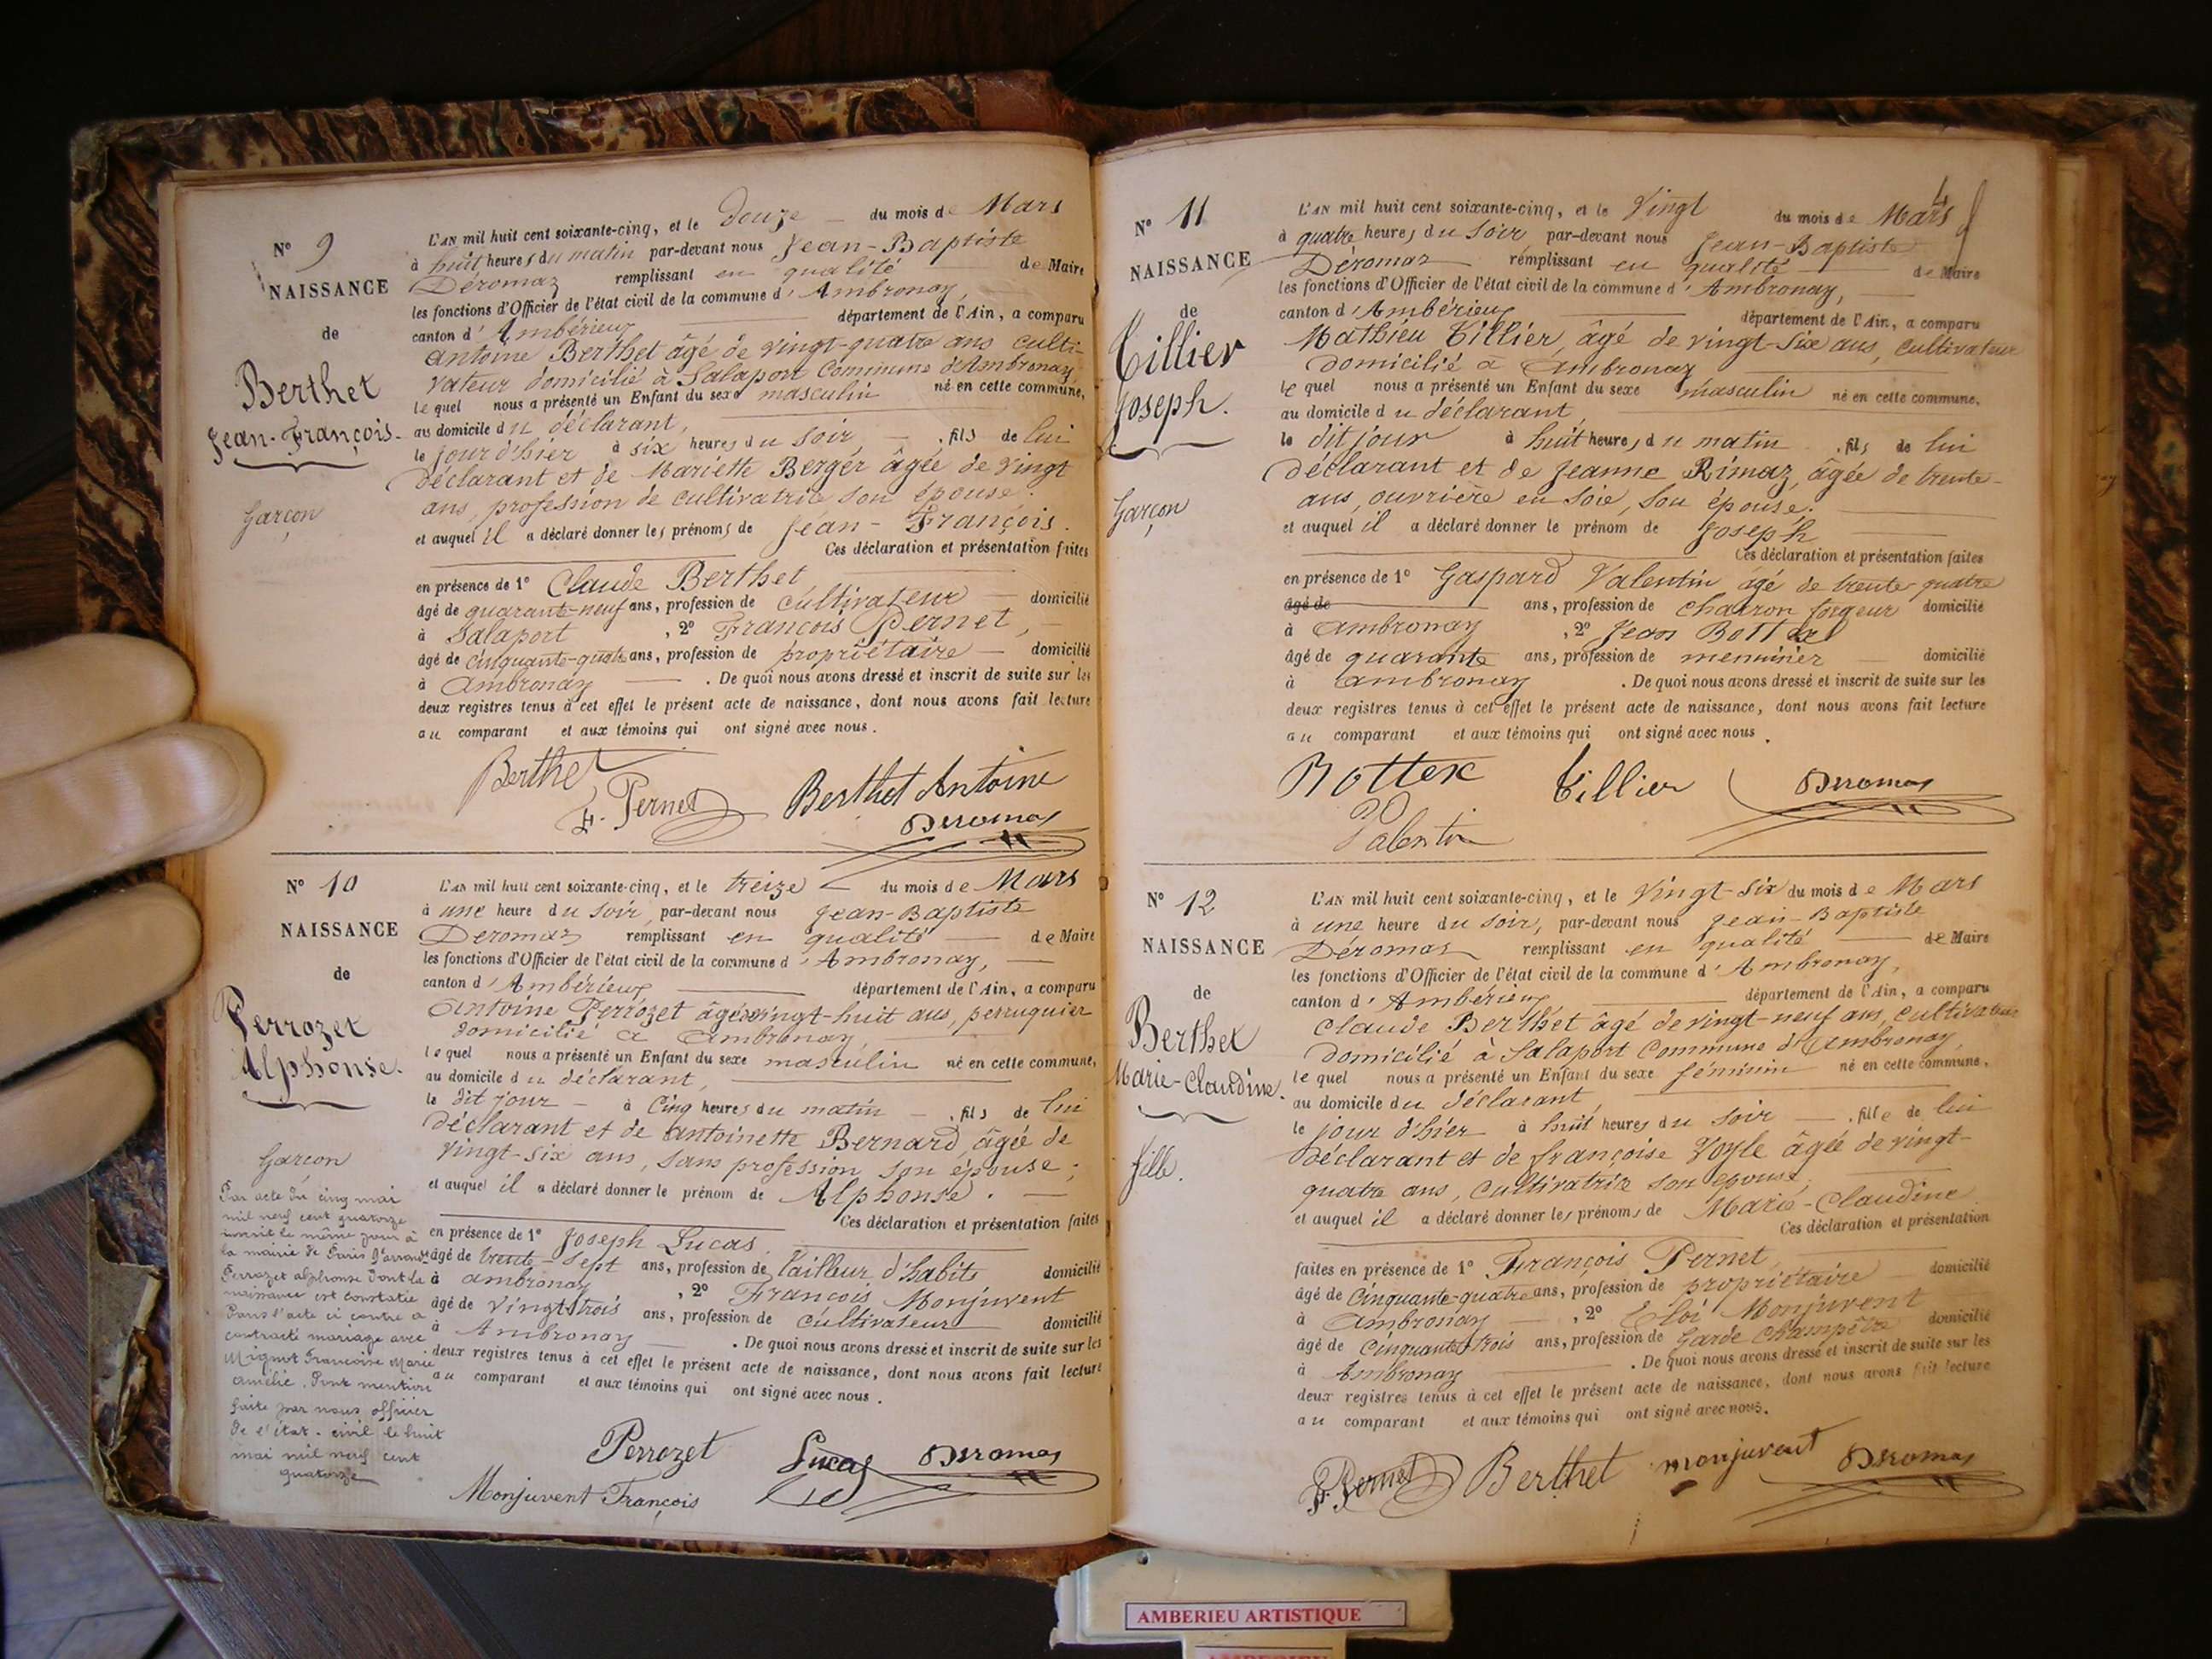 N° 9
NAISSANCE
de
Berthet
Jean-François.
Garçon
L'AN mil huit cent soixante-cinq, et le douze du mois de Mars
à huit heures du matin par-devant nous Jean-Baptiste
Déromaz remplissant en qualité de Maire
les fonctions d'Officier de l'état civil de la commune d'Ambronay,
canton d'Ambérieux département de l'Ain, a comparu
Antoine Berthet âgé de vingt-quatre ans culti-
vateur domicilié à Salaport Commune d'Ambronay
lequel nous a présenté un Enfant du sexe masculin né en cette commune,
au domicile du déclarant,
le jour d'hier à six heures du soir, fils de lui
déclarant et de Mariette Berger âgée de vingt
ans, profession de cultivatrice son épouse.
et auquel il a déclaré donner les prénoms de Jean-François.
Ces déclaration et présentation faites
en présence de 1° Claude Berthet
âgé de quarante-neuf ans, profession de cultivateur domicilié
à Salaport, 2° François Pernet,
âgé de cinquante-quatre ans, profession de propriétaire domicilié
à Ambronay. De quoi nous avons dressé et inscrit de suite sur les
deux registres tenus à cet effet le présent acte de naissance, dont nous avons fait lecture
au comparant et aux témoins qui ont signé avec nous.
Berthet
F. Pernet
Berthet Antoine
Deromas
N° 10
NAISSANCE
de
Perrozet
Alphonse.
Garçon
Par acte du cinq mai
mil neuf cent quatorze
inscrit le même jour à
la mairie de Paris 9e arrondt
Perrozet alphonse dont la
naissance est constatée
dans l'acte ci contre a
contracté mariage avec
Mignot Françoise Marie
amélie. Dont mention
faite par nous officier
de l'état-civil le huit
mai mil neuf cent
quatorze
L'AN mil huit cent soixante-cinq, et le treize du mois de Mars
à une heure du soir, par-devant nous Jean-Baptiste
Deromaz remplissant en qualité de Maire
les fonctions d'Officier de l'état civil de la commune d'Ambronay,
canton d'Ambérieux département de l'Ain, a comparu
Antoine Perrozet âgé de vingt-huit ans, perruquier
domicilié à Ambronay
lequel nous a présenté un Enfant du sexe masculin né en cette commune,
au domicile du déclarant,
le dit jour à cinq heures du matin, fils de lui
déclarant et de antoinette Bernard, âgée de
vingt-six ans, sans profession, son épouse;
et auquel il a déclaré donner le prénom de Alphonse.
Ces déclaration et présentation faites
en présence de 1° Joseph Lucas
âgé de trente-sept ans, profession de tailleur d'habits domicilié
à ambronay, 2° François Monjuvent
âgé de vingt-trois ans, profession de cultivateur domicilié
à Ambronay. De quoi nous avons dressé et inscrit de suite sur les
deux registres tenus à cet effet le présent acte de naissance, dont nous avons fait lecture
au comparant et aux témoins qui ont signé avec nous.
Perrozet Lucas Deromas
Monjuvent François
4
N° 11
NAISSANCE
de
Tillier
Joseph.
Garçon
L'AN mil huit cent soixante-cinq, et le Vingt du mois de Mars
à quatre heures du soir par-devant nous Jean-Baptiste
Déromaz remplissant en qualité de Maire
les fonctions d'Officier de l'état civil de la commune d'Ambronay,
canton d'Ambérieux département de l'Ain, a comparu
Mathieu Tillier, âgé de vingt-six ans, cultivateur
domicilié à Ambronay
lequel nous a présenté un Enfant du sexe masculin né en cette commune,
au domicile du déclarant,
le dit jour à huit heures du matin, fils de lui
déclarant et de Jeanne Rimaz, âgée de trente
ans, ouvrière en soie, son épouse.
et auquel il a déclaré donner le prénom de Joseph
Ces déclaration et présentation faites
en présence de 1° Gaspard Valentin âgé de trente quatre
âgé de ans, profession de charron forgeur domicilié
à Ambronay, 2° Jean Bottex
âgé de quarante ans, profession de menuisier domicilié
à Ambronay. De quoi nous avons dressé et inscrit de suite sur les
deux registres tenus à cet effet le présent acte de naissance, dont nous avons fait lecture
au comparant et aux témoins qui ont signé avec nous.
Bottex Tillier Deromas
Valentin
N° 12
NAISSANCE
de
Berthet
Marie-Claudine.
fille.
L'AN mil huit cent soixante-cinq, et le Vingt-six du mois de Mars
à une heure du soir, par-devant nous Jean-Baptiste
Déromaz remplissant en qualité de Maire
les fonctions d'Officier de l'état civil de la commune d'Ambronay,
canton d'Ambérieux, département de l'Ain, a comparu
Claude Berthet âgé de vingt-neuf ans, cultivateur
domicilié à Salaport Commune d'Ambronay,
lequel nous a présenté un Enfant du sexe féminin né en cette commune,
au domicile du déclarant,
le jour d'hier à huit heures du soir, fille de lui
déclarant et de françoise Voyle âgée de vingt-
quatre ans, cultivatrice son épouse
et auquel il a déclaré donner les prénoms de Marie-Claudine
Ces déclaration et présentation
faites en présence de 1° François Pernet,
âgé de Cinquante-quatre ans, profession de propriétaire domicilié
à Ambronay, 2° Eloi Monjuvent
âgé de Cinquante trois ans, profession de Garde Champêtre domicilié
à Ambronay. De quoi nous avons dressé et inscrit de suite sur les
deux registres tenus à cet effet le présent acte de naissance, dont nous avons fait lecture
au comparant et aux témoins qui ont signé avec nous.
F. Pernet Berthet monjuvent Deromas
AMBERIEU ARTISTIQUE